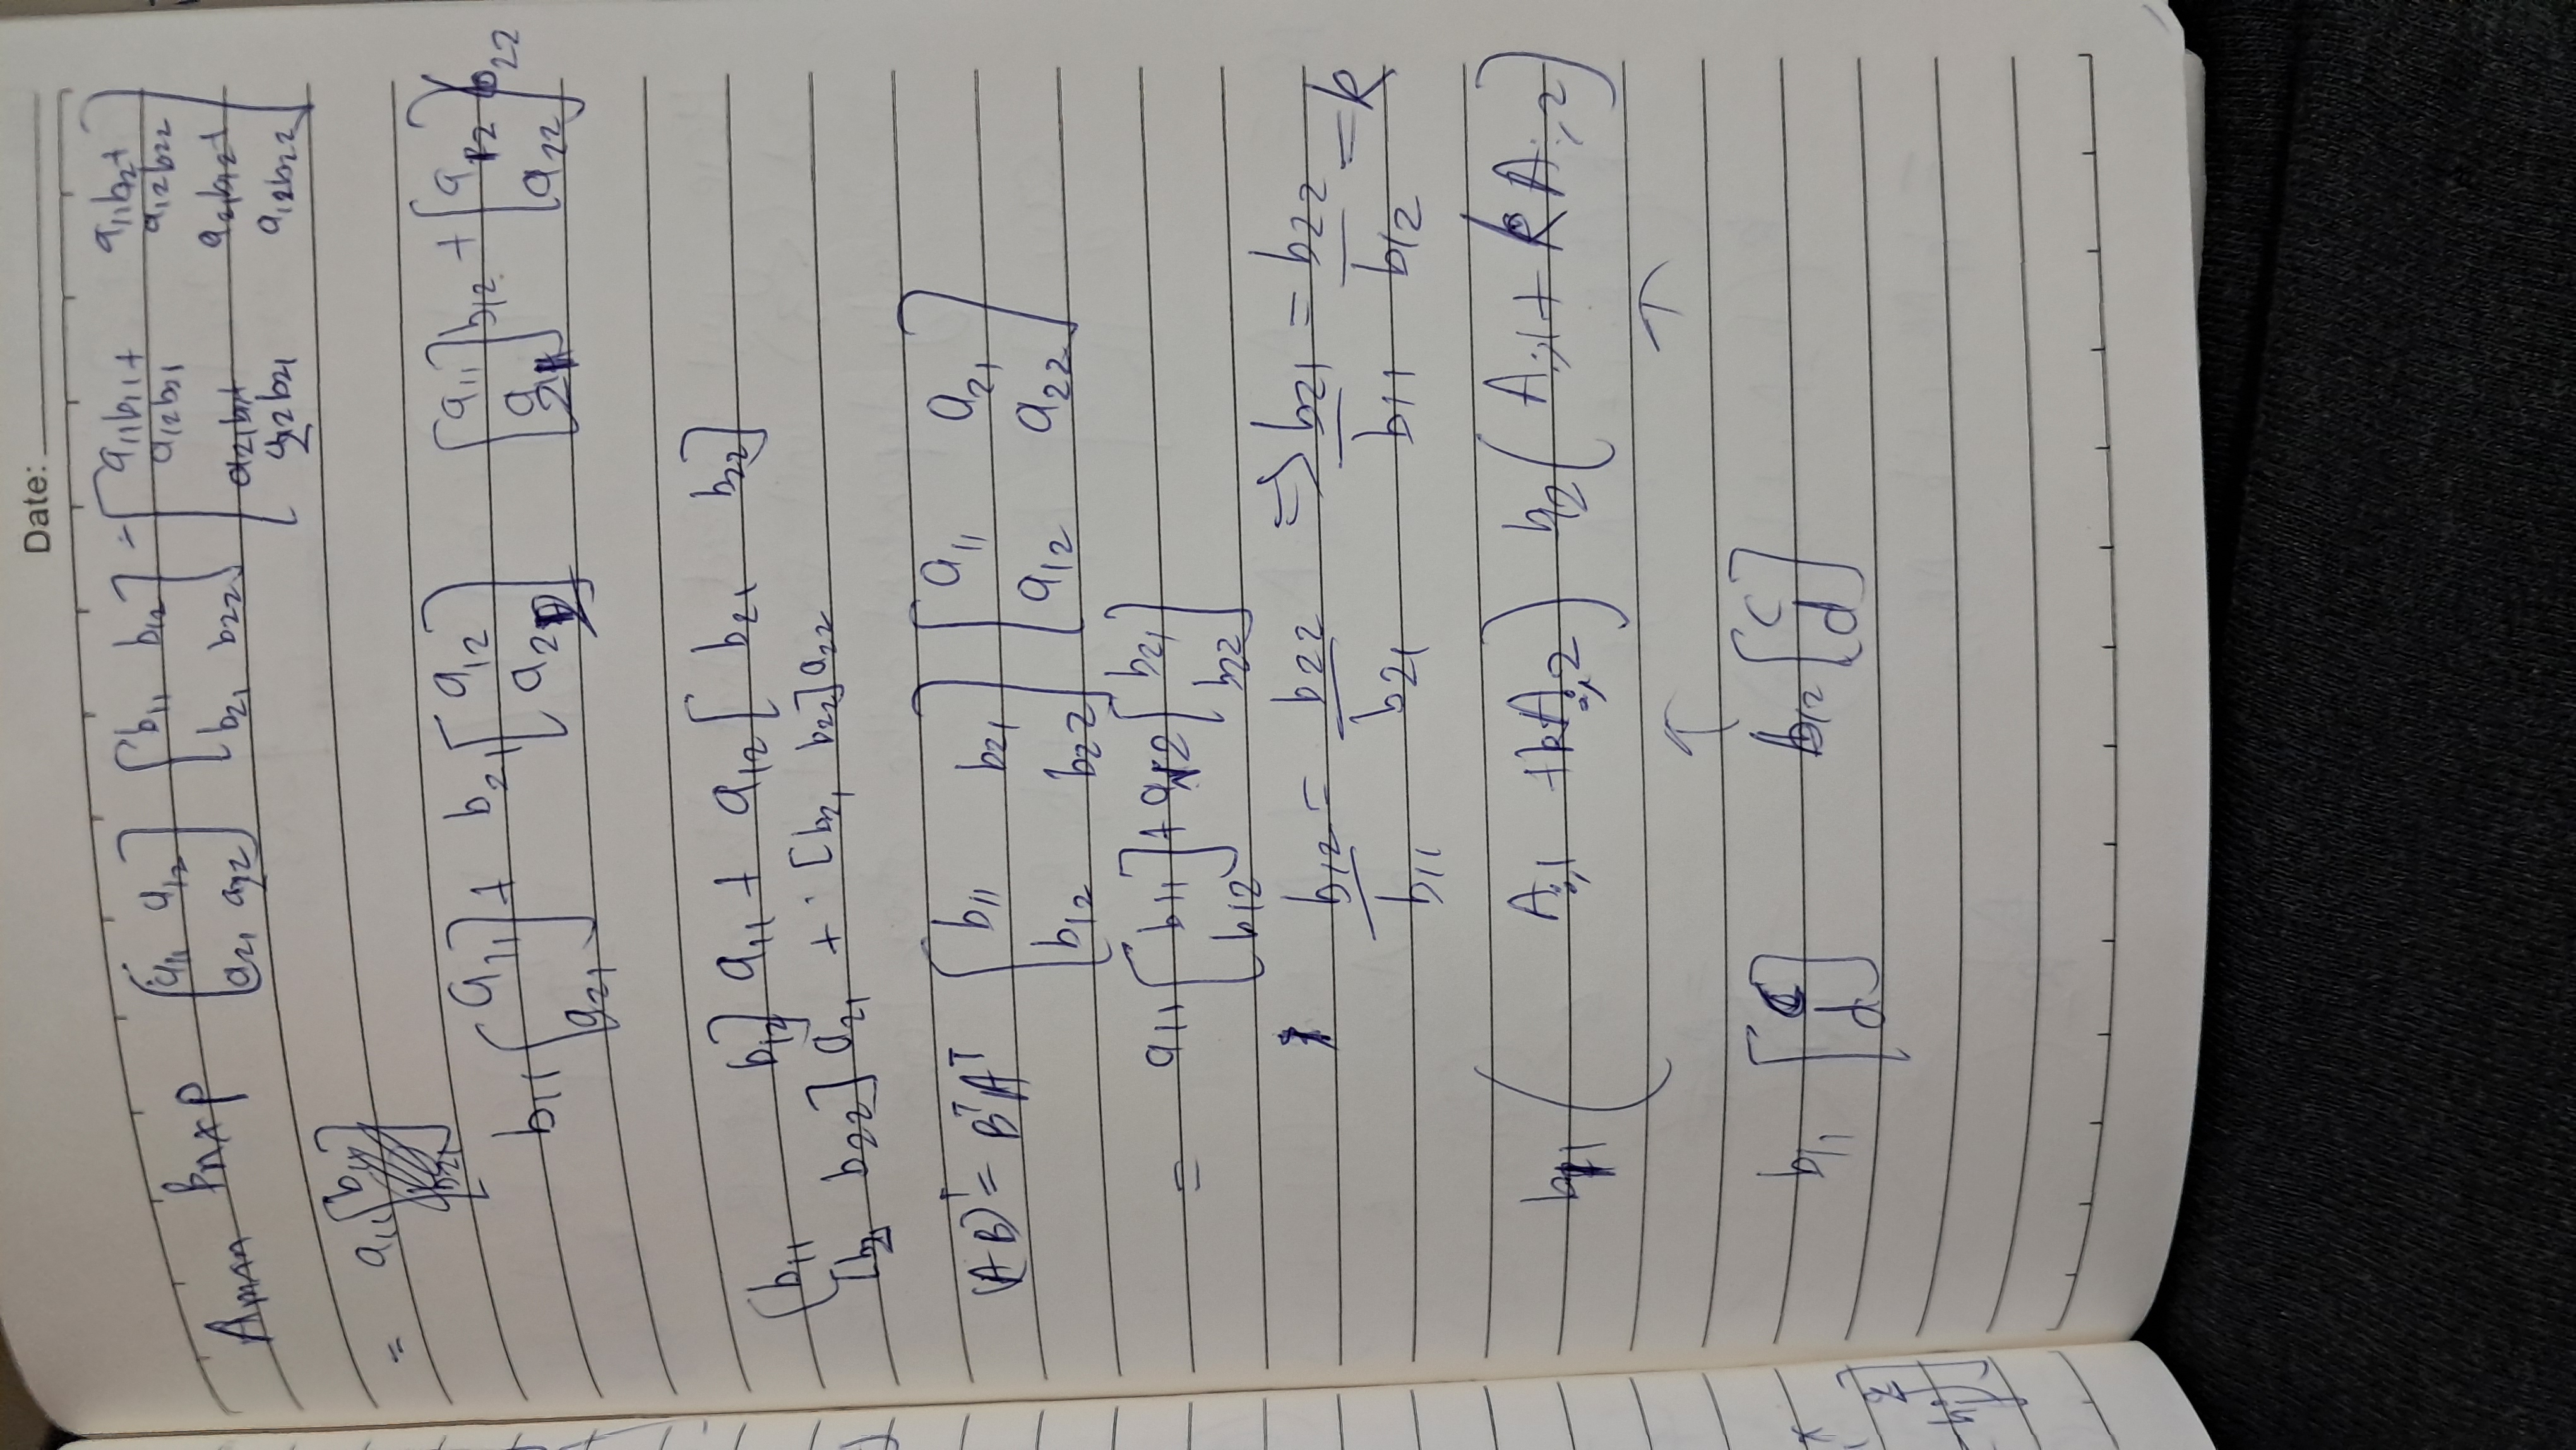 Date:
A_{m×n} B_{n×p} [a_{11} a_{12}; a_{21} a_{22}] [b_{11} b_{12}; b_{21} b_{22}] = [a_{11}b_{11}+a_{12}b_{21} a_{11}b_{12}+a_{12}b_{22}; a_{21}b_{11}+a_{22}b_{21} a_{21}b_{12}+a_{12}b_{22}]
= a_{11}
b_{11} [a_{11}; a_{21}] + b_{21} [a_{12}; a_{22}] [a_{11}; a_{21}] b_{12} + [a_{12}; a_{22}] b_{22}
[b_{11} b_{12}] a_{11} + a_{12} [b_{21} b_{22}]
[b_{21} b_{22}] a_{21} + [b_{21} b_{22}] a_{22}
(AB)^T = B^T A^T [b_{11} b_{21}; b_{12} b_{22}] [a_{11} a_{21}; a_{12} a_{22}]
= a_{11} [b_{11}; b_{12}] + a_{12} [b_{21}; b_{22}]
b_{12}/b_{11} = b_{22}/b_{21} ⇒ b_{21}/b_{11} = b_{22}/b_{12} = k
b_{11} (A_{:,1} + kA_{:,2}) b_{12} (A_{:,1} + kA_{:,2})
↑ ↑
b_{11} [c; d] b_{12} [c; d]